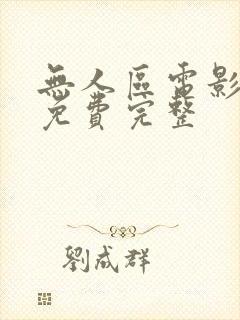 無人區電影
免費完整
劉成群